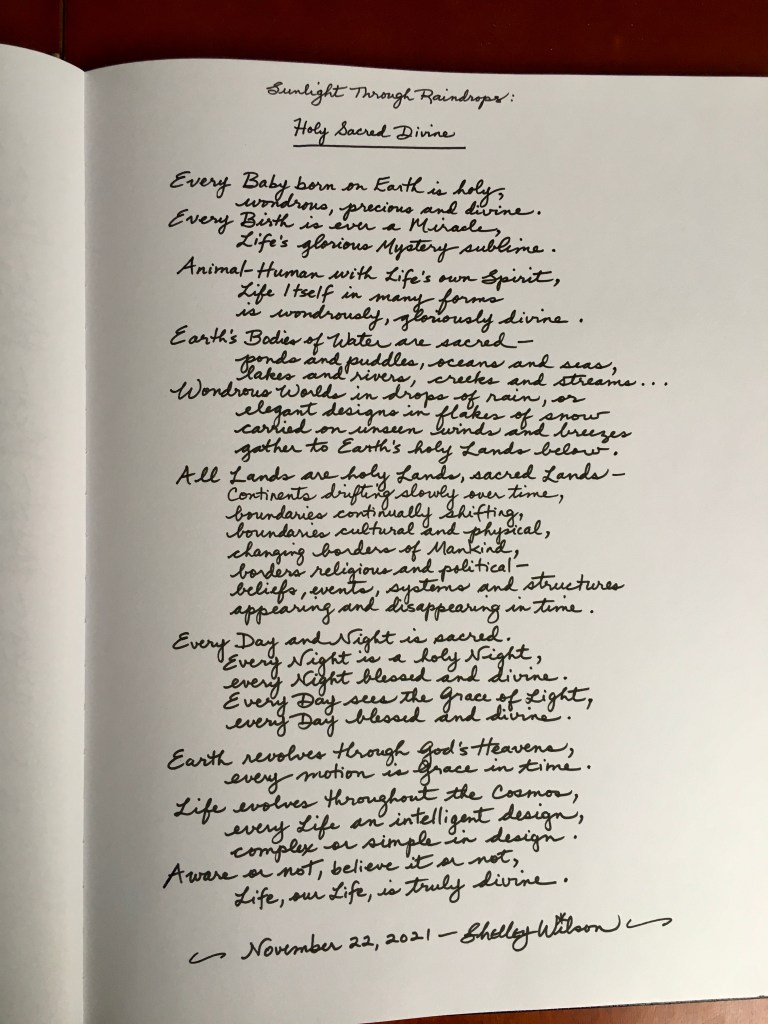 Sunlight Through Raindrops:
Holy Sacred Divine
Every Baby born on Earth is holy,
wondrous, precious and divine.
Every Birth is ever a Miracle,
Life's glorious Mystery sublime.
Animal-Human with Life's own Spirit,
Life Itself in many forms
is wondrously, gloriously divine.
Earth's Bodies of Water are sacred—
ponds and puddles, oceans and seas,
lakes and rivers, creeks and streams...
Wondrous Worlds in drops of rain, or
elegant designs in flakes of snow
carried on unseen winds and breezes
gather to Earth's holy Lands below.
All Lands are holy Lands, sacred Lands—
Continents drifting slowly over time,
boundaries continually shifting,
boundaries cultural and physical,
changing borders of Mankind,
borders religious and political—
beliefs, events, systems and structures
appearing and disappearing in time.
Every Day and Night is sacred.
Every Night is a holy Night,
every Night blessed and divine.
Every Day sees the Grace of Light,
every Day blessed and divine.
Earth revolves through God's Heavens,
every motion is Grace in time.
Life evolves throughout the Cosmos,
every Life an intelligent design,
complex or simple in design.
Aware or not, believe it or not,
Life, our Life, is truly divine.
November 22, 2021 — Shelley Wilson